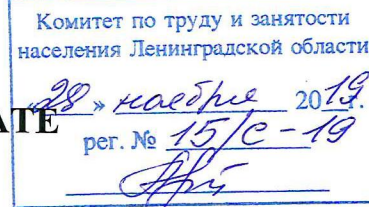 Комитет по труду и занятости
населения Ленинградской области
«28» ноября 2019г.
АТЕ рег. № 15/С-19